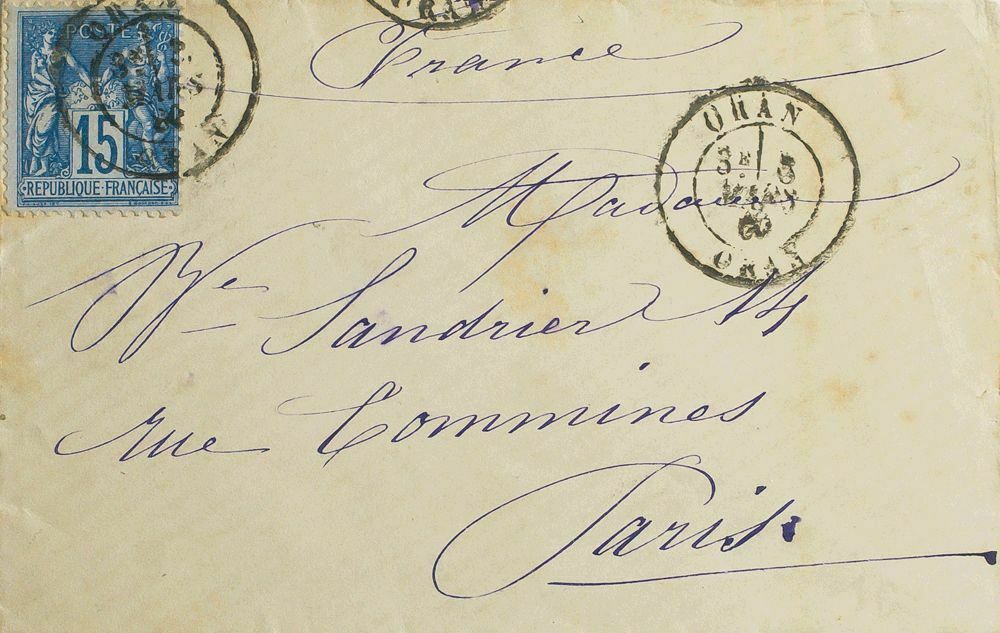 POSTES
15
REPUBLIQUE FRANÇAISE
ORAN
ORAN
France
ORAN
3E
MARS
ORAN
Madame
Vve Sandrier 14
rue Commines
Paris